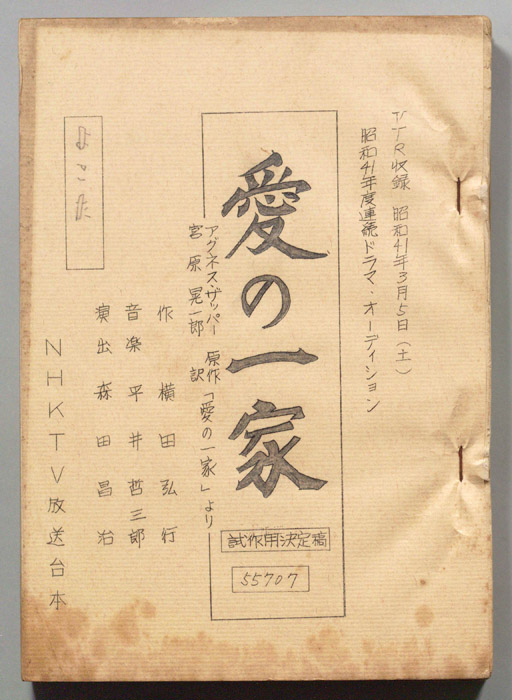 VTR収録 昭和41年3月5日(土)
昭和41年度連続ドラマ・オーディション
愛の一家
試作用決定稿
55707
アグネス・ザッパー 原作
宮原晃一郎 訳
「愛の一家」より
作 横田弘行
音楽 平井哲三郎
演出 森田昌治
よこた
NHKTV放送台本